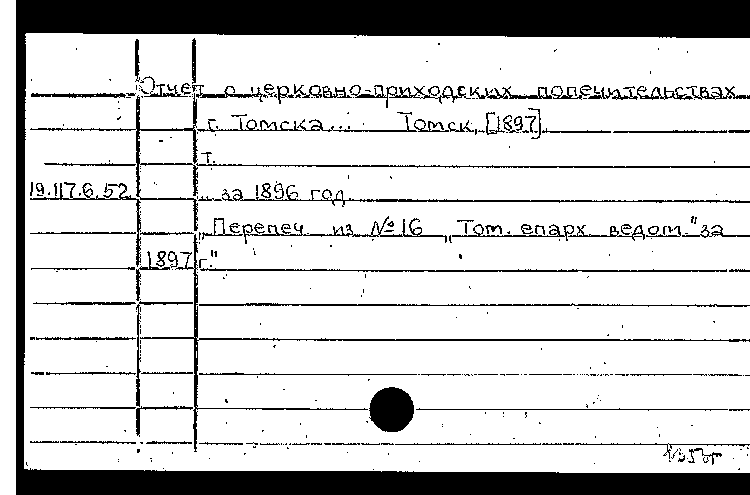 Отчет о церковно-приходских попечительствах
г. Томска... Томск, [1897].
т.
19.117.6.52 .. за 1896 год.
„Перепеч из №16 „Том. епарх ведом." за
1897 г."